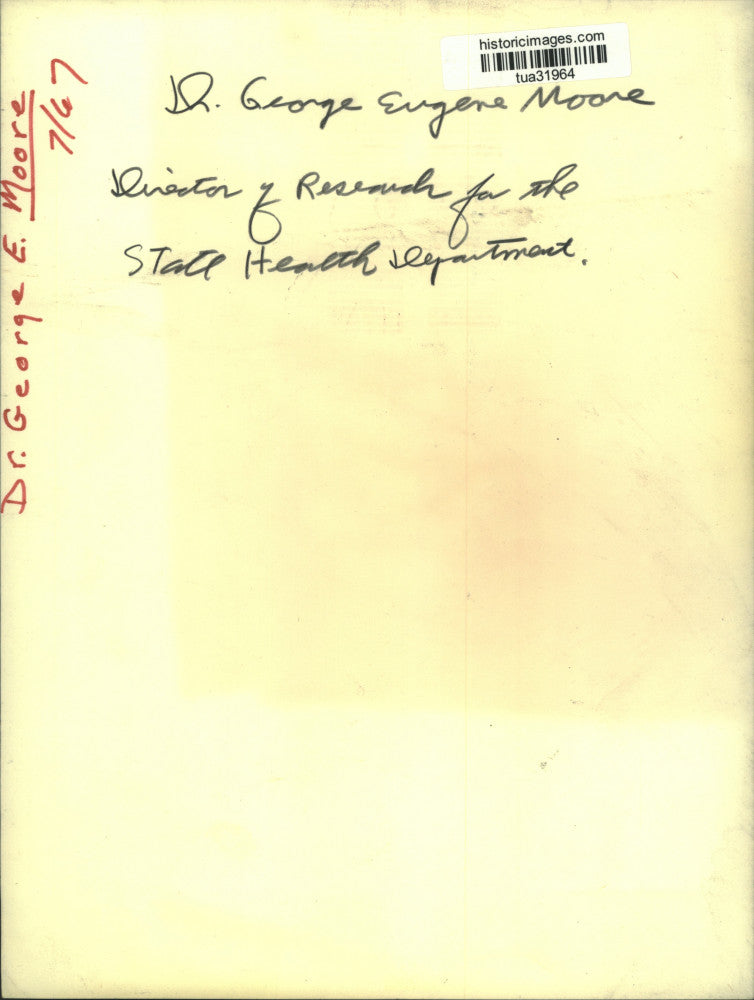 historicimages.com
tua31964
Dr. George Eugene Moore
Director of Research for the
State Health Department.
Dr. George E. Moore
7/67